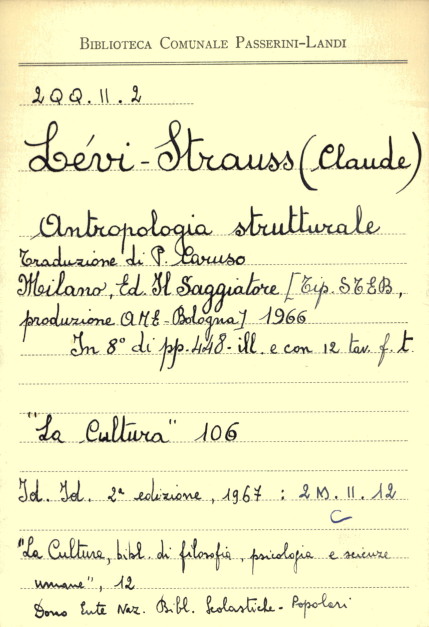 BIBLIOTECA COMUNALE PASSERINI-LANDI
2QQ.II.2
Lévi-Strauss (Claude)
Antropologia strutturale
Traduzione di P. Caruso
Milano, Ed. Il Saggiatore [Tip. STEB,
produzione AME-Bologna] 1966
In 8° di pp. 448-ill. e con 12 tav. f. t.
"La Cultura" 106
Id. Id. 2ª edizione, 1967 : 2 M. II. 12
C
"La Cultura, bibl. di filosofia, psicologia e scienze
umane", 12
Dono Ente Naz. Bibl. Scolastiche-Popolari